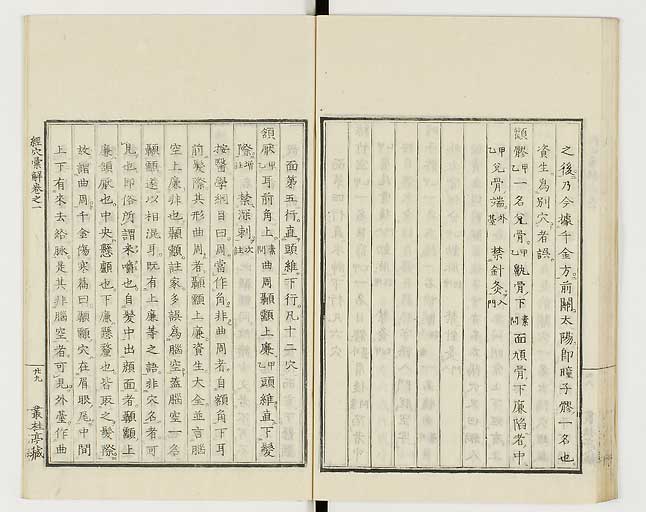 之後乃今據千金方前關太陽即瞳子髎一名也
資生為別穴者誤
顴髎甲乙一名兌骨甲乙䪼骨下素問面頄骨下廉陷者中
甲乙兌骨端外臺禁針灸入門
面第五行直頭維下行凡十二穴
頷厭甲乙耳前角上素問曲周顳顬上廉甲乙頭維直下髮
際增註禁深刺次註
按醫學綱目曰周當作角非曲周者自額角下耳
前髮際其形曲周者顳顬上廉資生大全並言腦
空上廉非也顳顬註家多誤為腦空蓋腦空一名
顳顬遂以相混耳既有上廉等之語非穴名者可
見也即俗所謂米嚼也自髮中出顏面者顳顬上
廉頷厭也中央懸顱也下廉懸釐也皆取之髮際
故謂曲周千金傷寒篇曰顳顬穴在眉眼尾中間
上下有來去絡脉是其非腦空者可見外臺作曲
經穴彙解卷之一
廿九
叢桂亭藏